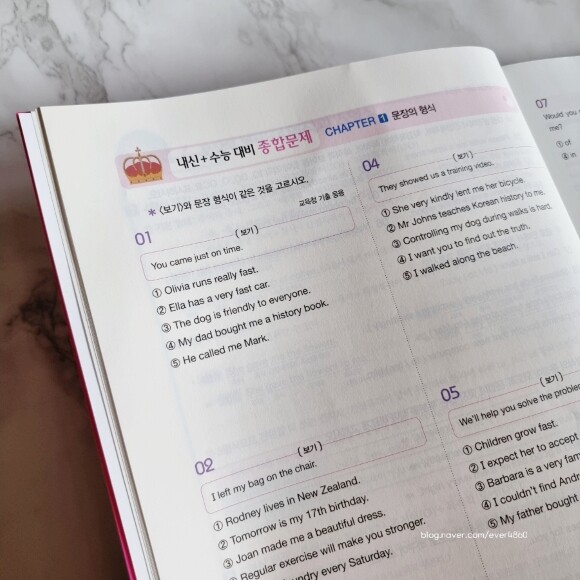 내신+수능 대비 종합문제 CHAPTER 1 문장의 형식
* 〈보기〉와 문장 형식이 같은 것을 고르시오.
교육청 기출 응용
01
〈보기〉
You came just on time.
① Olivia runs really fast.
② Ella has a very fast car.
③ The dog is friendly to everyone.
④ My dad bought me a history book.
⑤ He called me Mark.
02
〈보기〉
I left my bag on the chair.
① Rodney lives in New Zealand.
② Tomorrow is my 17th birthday.
③ Joan made me a beautiful dress.
④ Regular exercise will make you stronger.
every Saturday.
04
〈보기〉
They showed us a training video.
① She very kindly lent me her bicycle.
② Mr Johns teaches Korean history to me.
③ Controlling my dog during walks is hard.
④ I want you to find out the truth.
⑤ I walked along the beach.
05
〈보기〉
We'll help you solve the
① Children grow fast.
② I expect her to accept
③ Barbara is a very
④ I couldn't find
⑤ My father bought
07
Would you
me?
① of
④ in
blog.naver.com/ever48b0